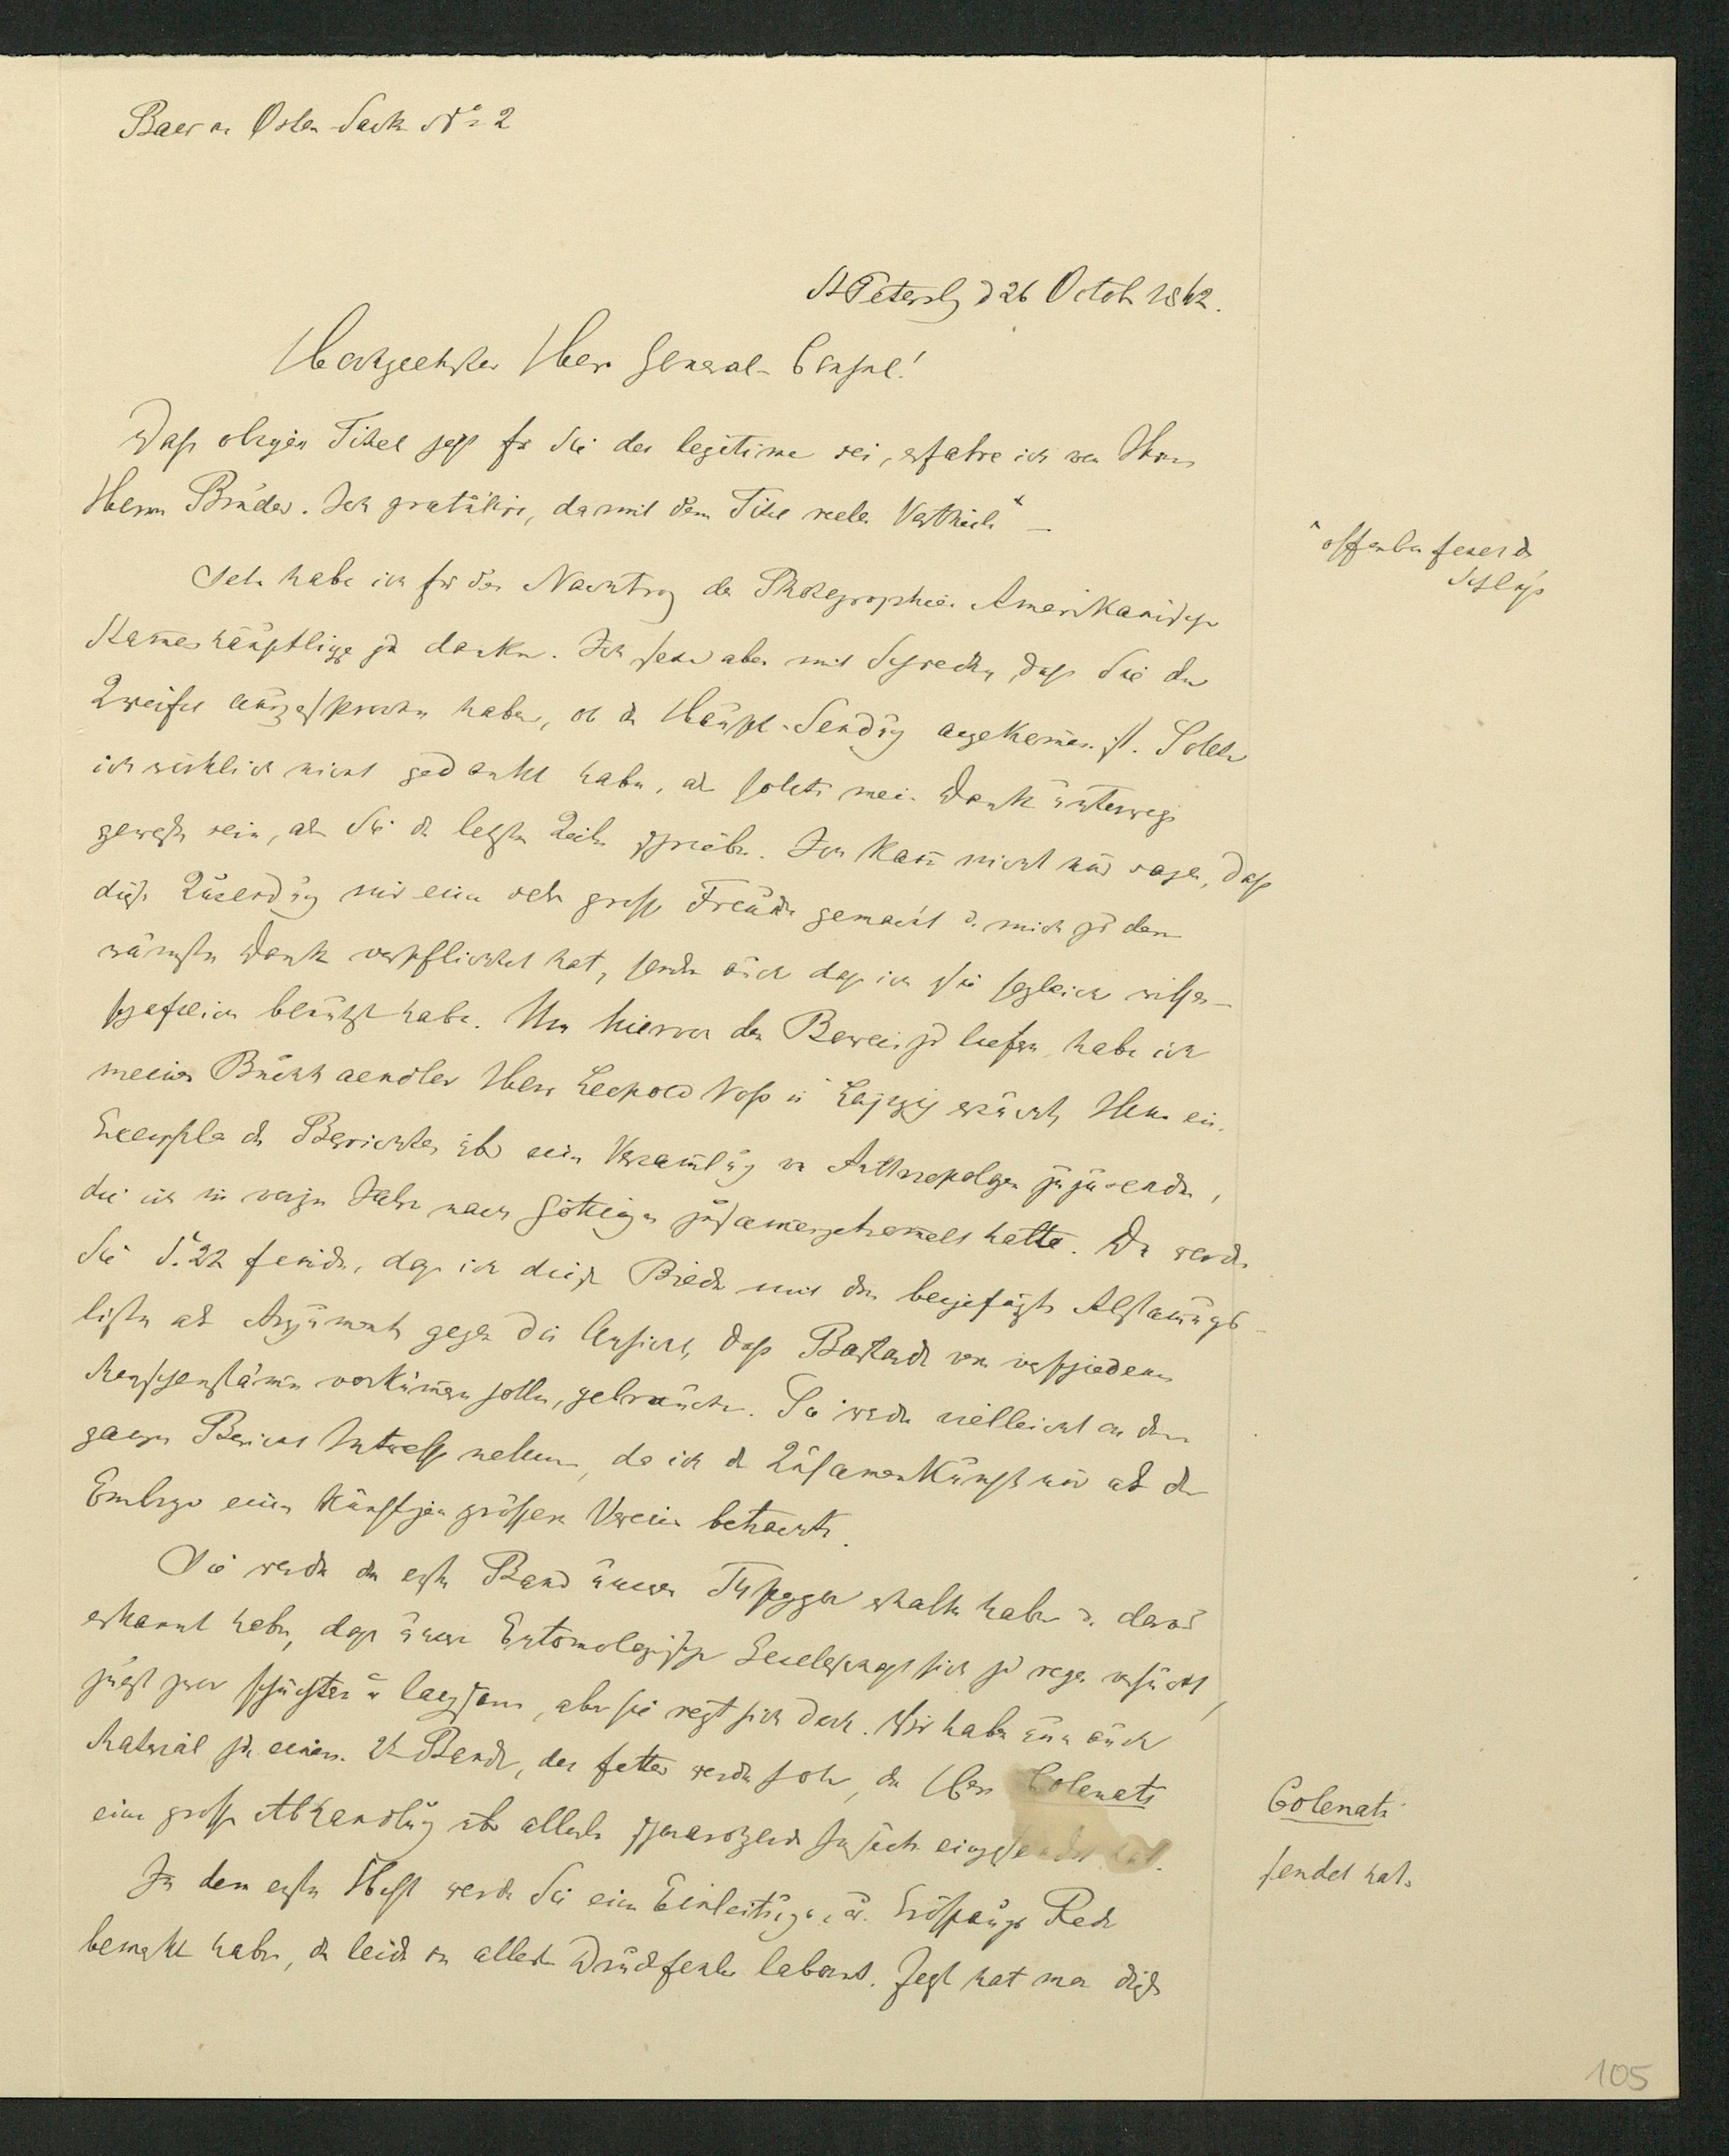 Baer an Osten Sacken No 2
St Petersb d 26 Octob 1862.
Hochgeehrter Herr General-Consul!
Dass obiger Titel jetzt für Sie der legitime sei, erfahre ich von Ihrem
Herrn Bruder. Ich gratulire, da mit dem Titel viele Vortheile* —
* offenbar
Schluss
Sehr habe ich für den Nachtrag der Photographien Amerikanischer
Stammeshäuptlinge zu danken. Ich sehe aber mit Schrecken, dass Sie den
Zweifel ausgesprochen haben, ob die Haupt-Sendung angekommen ist. Sollte
ich wirklich nicht gedankt haben, oder sollte mein Dank unterwegs
gewesen sein, als Sie die letzten Zeilen schrieben. Ich kann nicht nur sagen, dass
diese Zusendung mir eine sehr grosse Freude gemacht u. mich zu dem
wärmsten Dank verpflichtet hat, sondern auch dass ich sie sogleich wissen-
schaftlich benutzt habe. Um hiervon den Beweis zu liefern, habe ich
meinen Buchhaendler Herr Leopold Voss in Leipzig ersucht, Ihnen ein
Exemplar des Berichtes über eine Versamlung von Anthropologen zuzusenden,
die ich im vorigen Jahre nach Göttingen zusamengetrommelt hatte. Da werden
Sie S. 22 finden, dass ich diese Bilder mit den beigefügten Abstamungs-
listen als Argumente gegen die Ansicht, dass Bastarde von verschiedenen
Menschenstämen verkümern sollen, gebrauche. Sie werden vielleicht an dem
ganzen Bericht Interesse nehmen, da ich die Zusamenkunft nur als den
Embryo eines künftigen grössern Vereins betrachte.
Sie werden den ersten Band unserer erhalten haben u. daraus
erkannt haben, dass unsere Entomologische Gesellschaft sich zu regen versucht,
zuerst zwar schüchtern u langsam, aber sie regt sich doch. Wir haben nun auch
Material zu einem 2t Bande, der fetter werden soll, da Herr Colenati
Colenati
eine grosse Abhandlung über allerlei schmarotzende Insecten eingesendet hat.
sendet hat.
In dem ersten Heft werden Sie eine Einleitungs- od. Eröffnungs Rede
bemerkt haben, die leider an allerlei Druckfehlern laborirt. Jetzt hat man diese
105